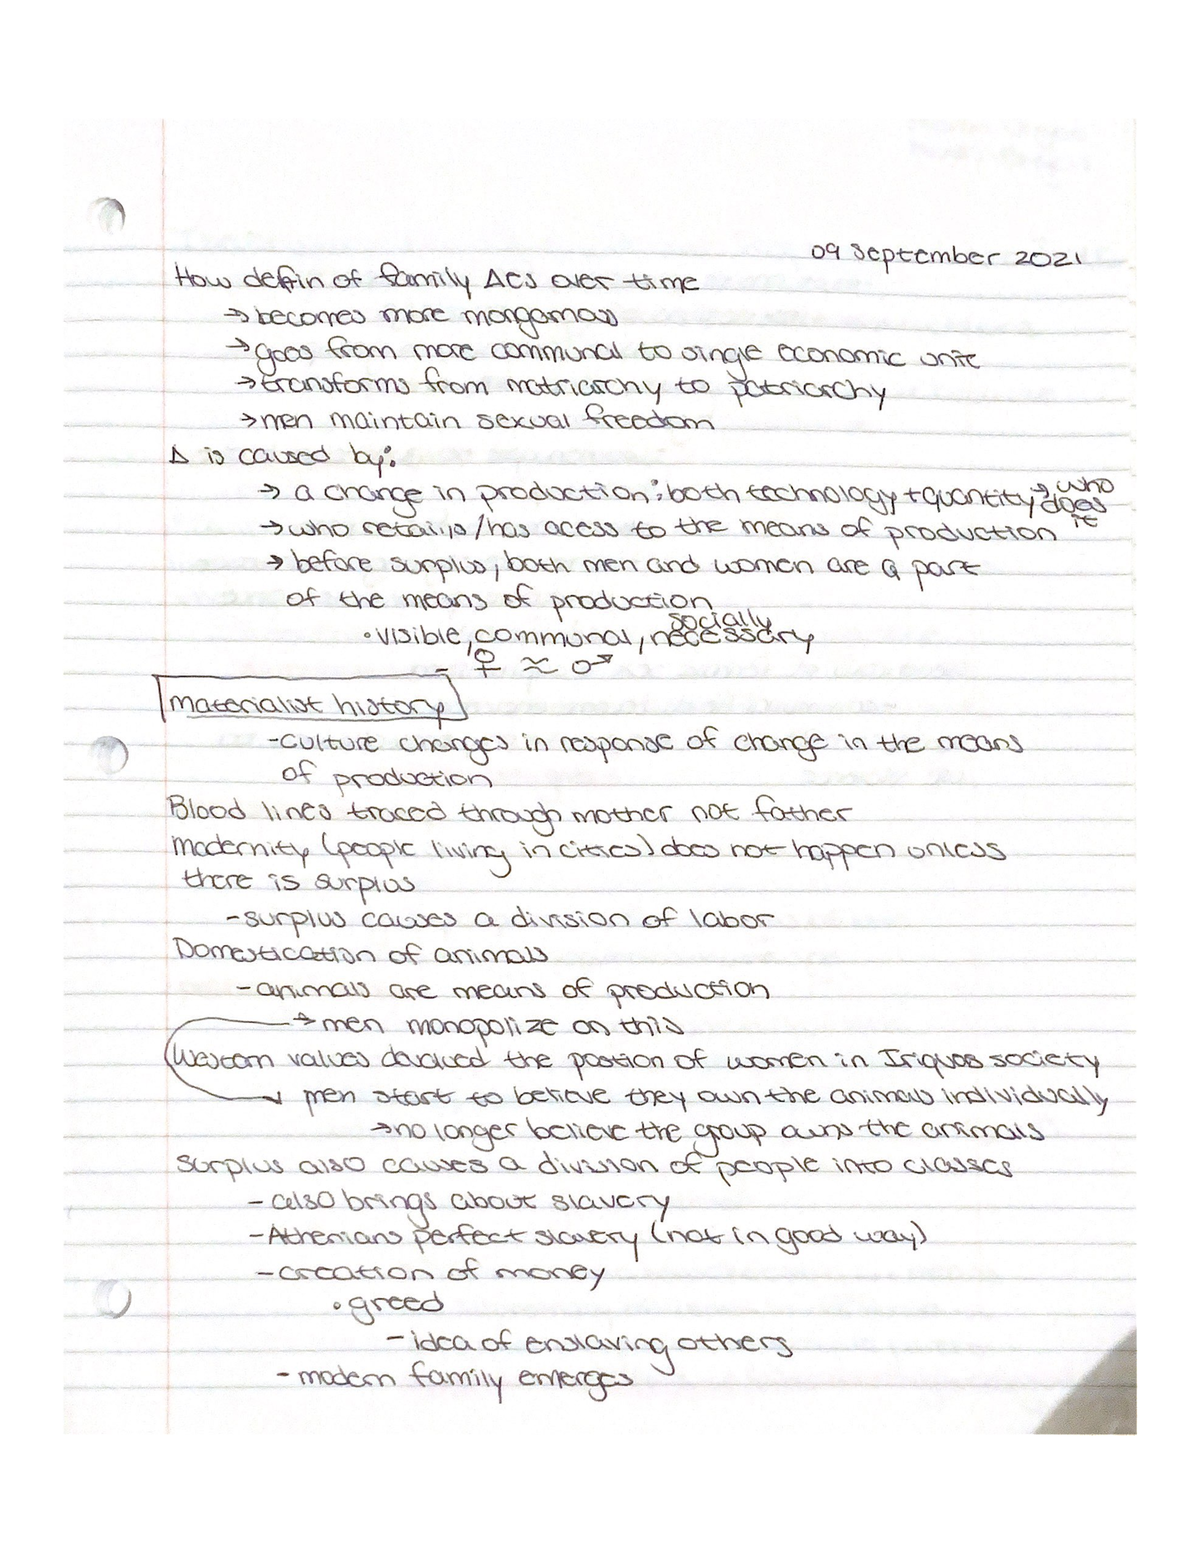 09 September 2021
How defin of family ΔCS over time
→ becomes more mongamas
→ goes from more communal to single economic unit
→ transforms from matriarchy to patriarchy
→ men maintain sexual freedom
Δ is caused by:
→ a change in production: both technology + quantity → who does it
→ who retains/has acess to the means of production
→ before surplus, both men and women are a part
of the means of production
• visible, communal, socially necessary
- ♀ ≈ ♂
materialist history
- culture changes in response of change in the means
of production
Blood lines traced through mother not father
modernity (people living in cities) does not happen unless
there is surplus
- surplus causes a division of labor
Domestication of animals
- animals are means of production
→ men monopolize on this
Western values devalued the postion of women in Iriquos society
men start to believe they own the animals individually
→ no longer believe the group owns the animals
surplus also causes a division of people into classes
- also brings about slavery
- Athenians perfect slavery (not in good way)
- creation of money
• greed
- idea of enslaving others
- modern family emerges